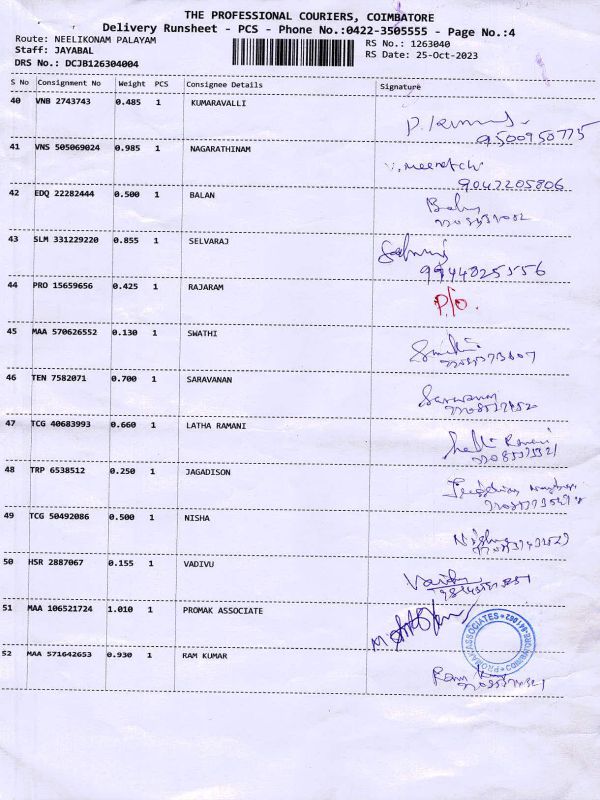 THE PROFESSIONAL COURIERS, COIMBATORE
Delivery Runsheet - PCS - Phone No.:0422-3505555 - Page No.:4
Route: NEELIKONAM PALAYAM RS No.: 1263040
Staff: JAYABAL RS Date: 25-Oct-2023
DRS No.: DCJB126304004
S No Consignment No Weight PCS Consignee Details Signature
40 VNB 2743743 0.485 1 KUMARAVALLI
9500950775
41 VNS 505069024 0.985 1 NAGARATHINAM
9047205806
42 EDQ 22282444 0.500 1 BALAN
43 SLM 331229220 0.855 1 SELVARAJ
9944825556
44 PRO 15659656 0.425 1 RAJARAM P/o.
45 MAA 570626552 0.130 1 SWATHI
46 TEN 7582071 0.700 1 SARAVANAN Saravanan
47 TCG 40683993 0.660 1 LATHA RAMANI
48 TRP 6538512 0.250 1 JAGADISON
49 TCG 50492086 0.500 1 NISHA Nisha
50 HSR 2887067 0.155 1 VADIVU
51 MAA 106521724 1.010 1 PROMAK ASSOCIATE
52 MAA 571642653 0.930 1 RAM KUMAR